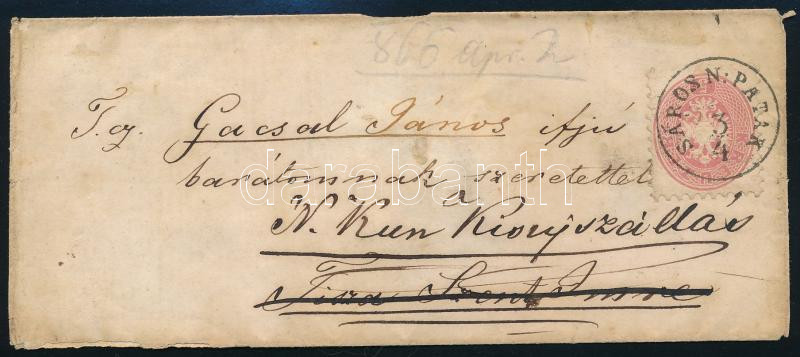 866 apr. 2
SÁROS N: PATAK
3/4
T. cz. Gacsal János ifjú
barátomnak szeretettel
a
N. Kun Kisujszállás
Tisza Szent Imre
darabanth